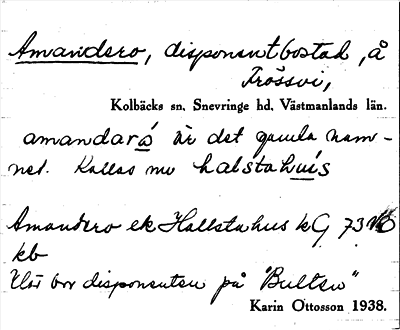 Amandero, disponentbostad, å
Frössvi,
Kolbäcks sn, Snevringe hd, Västmanlands län.
amandaró är det gamla nam-
net. Kallas nu halstahuis
Amandero ek Hallstahus kG 73
kb
bor disponenten på "Bulten"
Karin Ottosson 1938.